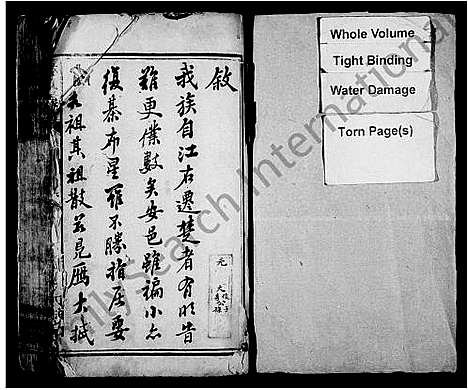 敘
我族自江右遷楚者有明昔
難更僕數矣安邑雖褊小亦
復綦布星羅不勝指屈要
太祖其祖散若見雁大抵
元
Whole Volume
Tight Binding
Water Damage
Torn Page(s)
FamilySearch International